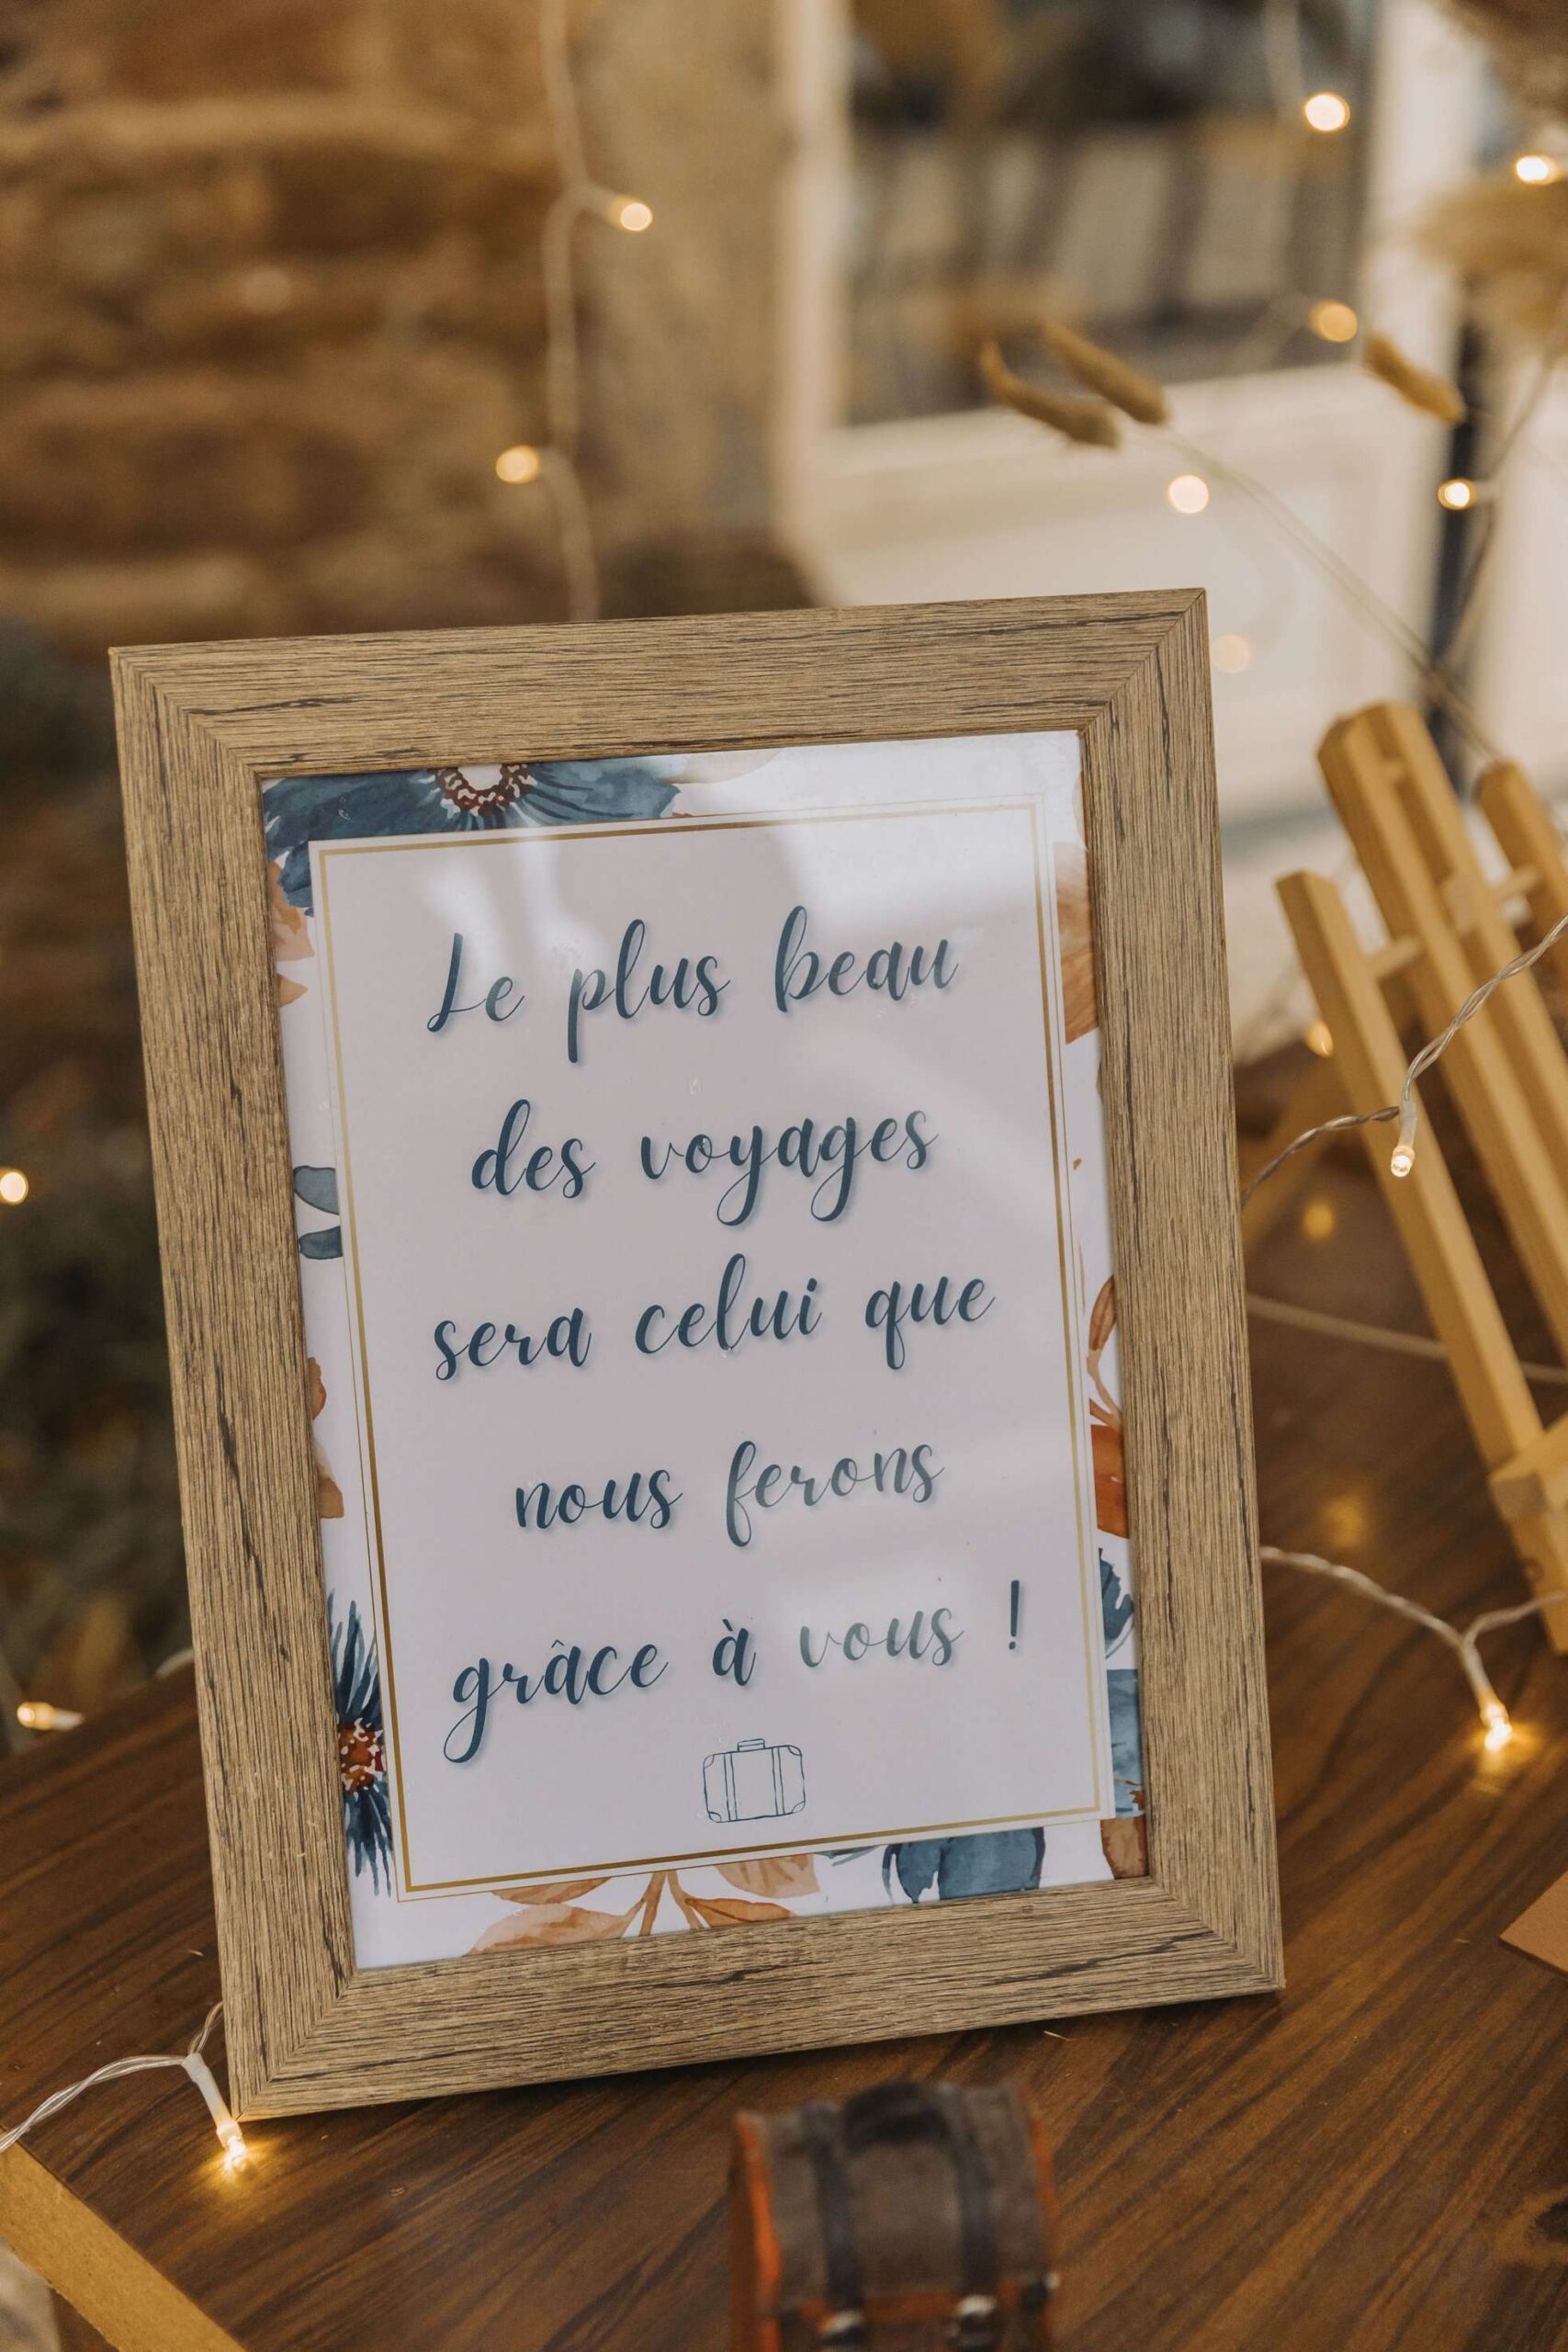 Le plus beau
des voyages
sera celui que
nous ferons
grâce à vous !